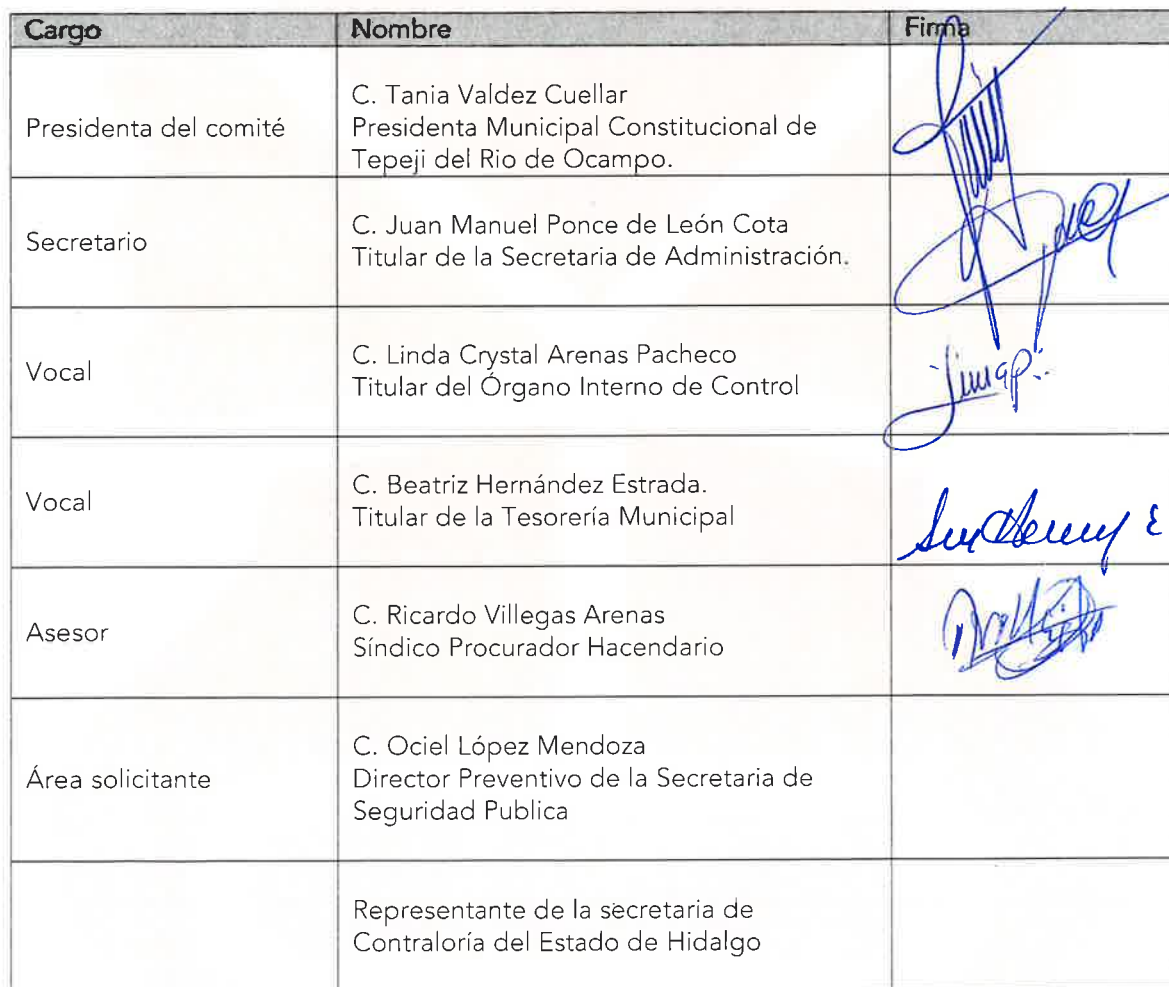 Cargo Nombre Firma
C. Tania Valdez Cuellar
Presidenta del comité Presidenta Municipal Constitucional de
Tepeji del Rio de Ocampo.
Secretario C. Juan Manuel Ponce de León Cota
Titular de la Secretaria de Administración.
Vocal C. Linda Crystal Arenas Pacheco
Titular del Órgano Interno de Control
Vocal C. Beatriz Hernández Estrada.
Titular de la Tesorería Municipal
Asesor C. Ricardo Villegas Arenas
Síndico Procurador Hacendario
C. Ociel López Mendoza
Área solicitante Director Preventivo de la Secretaria de
Seguridad Publica
Representante de la secretaria de
Contraloría del Estado de Hidalgo